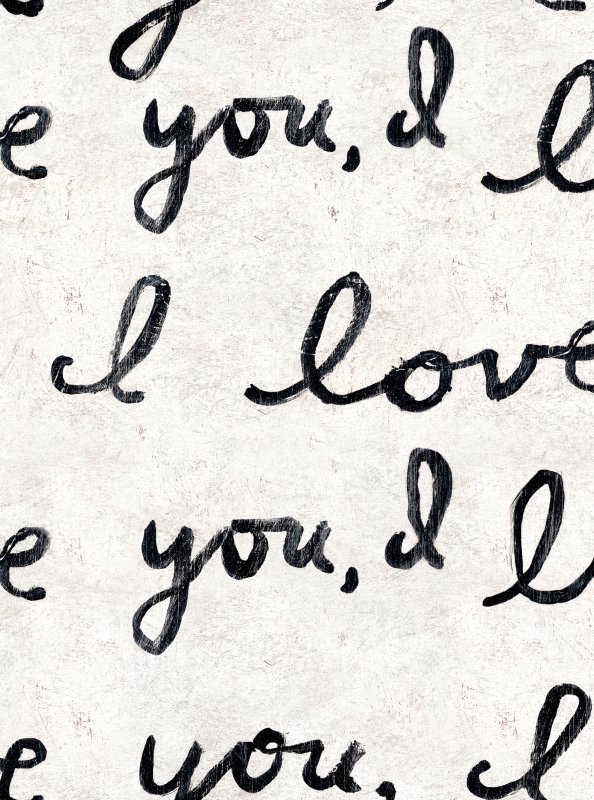 e you, I l
I love
e you, I l
e you, I